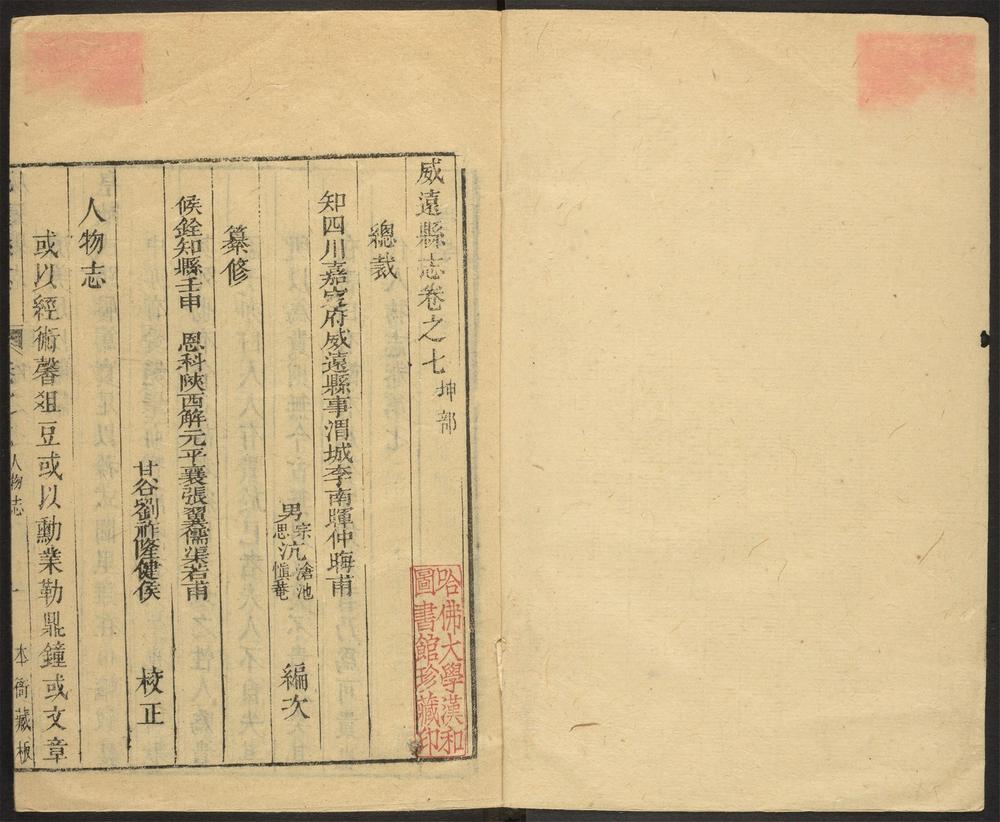 威遠縣志卷之七 坤部
總裁
知四川嘉定府威遠縣事渭城李南暉仲晦甫
男宗沆滄池
思 愼菴
編次
纂修
候銓知縣壬申 恩科陝西解元平襄張翼儒渠若甫
甘谷劉祚隆健侯
校正
人物志
或以經術馨爼豆或以勳業勒鼎鐘或文章
人物志
一
本衙藏板
哈佛大學漢和
圖書館珍藏印